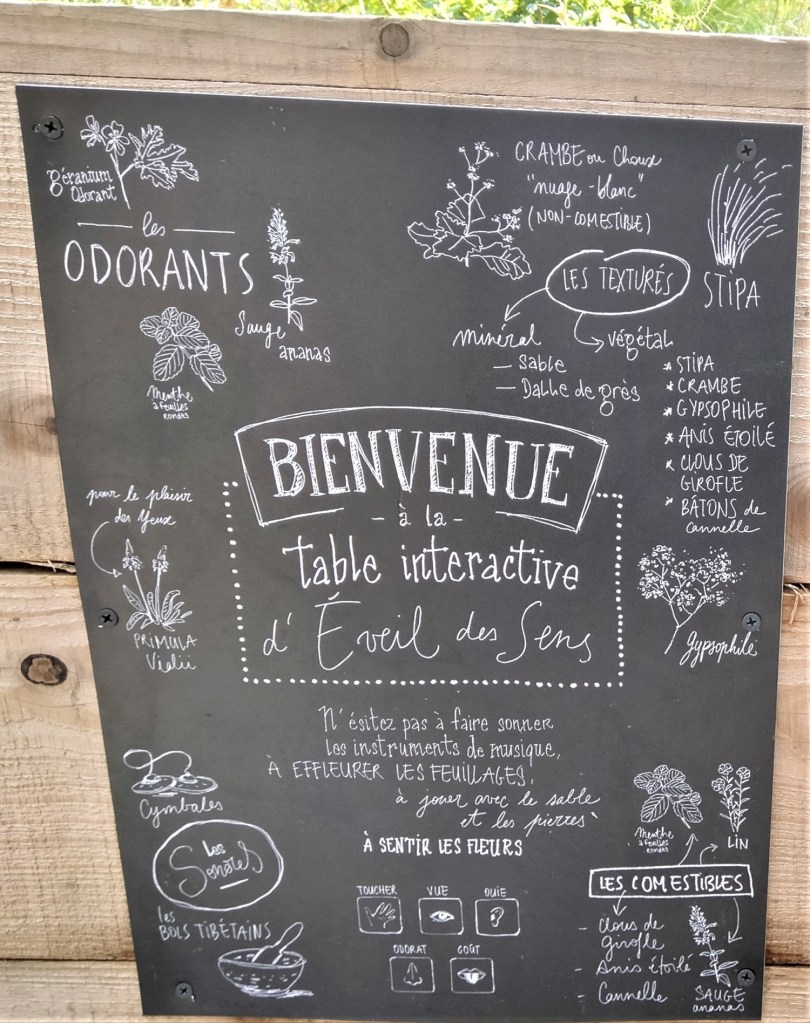 géranium
Odorant
les
ODORANTS
Sauge
ananas
Menthe
à feuilles
rondes
CRAMBE ou Choux
"nuage-blanc"
(NON-COMESTIBLE)
STIPA
LES TEXTURÉS
minéral
— Sable
— Dalle de grès
végétal
* STIPA
* CRAMBE
* GYPSOPHILE
* ANIS ÉTOILÉ
* CLOUS DE
GIROFLE
* BÂTONS de
cannelle
BIENVENUE
- à la -
table interactive
d'Éveil des Sens
pour le plaisir
des yeux
PRIMULA
Vialii
gypsophile
N'ésitez pas à faire sonner
les instruments de musique,
À EFFLEURER LES FEUILLAGES,
à jouer avec le sable
et les pierres
À SENTIR LES FLEURS
Cymbales
les
Sonores
les
BOLS TIBÉTAINS
TOUCHER VUE OUIE
ODORAT GOÛT
Menthe
à feuilles
rondes
LIN
LES COMESTIBLES
- Clous de
girofle
- Anis étoilé
- Cannelle
SAUGE
ananas